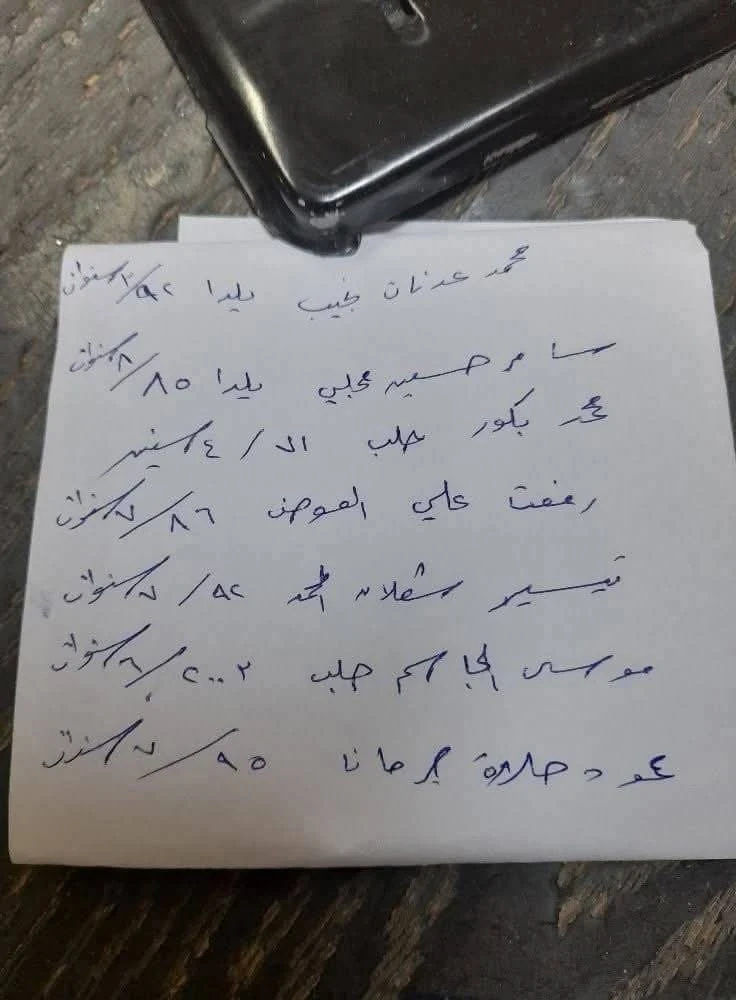 محمد عدنان نجيب يلدا ٩٢/ سنوات
سامر حسين مجلي يلدا ٨٥/٨ سنوات
محمد بكور حلب /٤ سنين
رفعت علي العوض ٨٦/٧ سنوات
تيسير شعلان الحمد ٩٢/٧ سنوات
موسى الجاسم حلب ٢٠٠٢/٦ سنوات
حلاوة جرمانا ٩٥/٧ سنوات